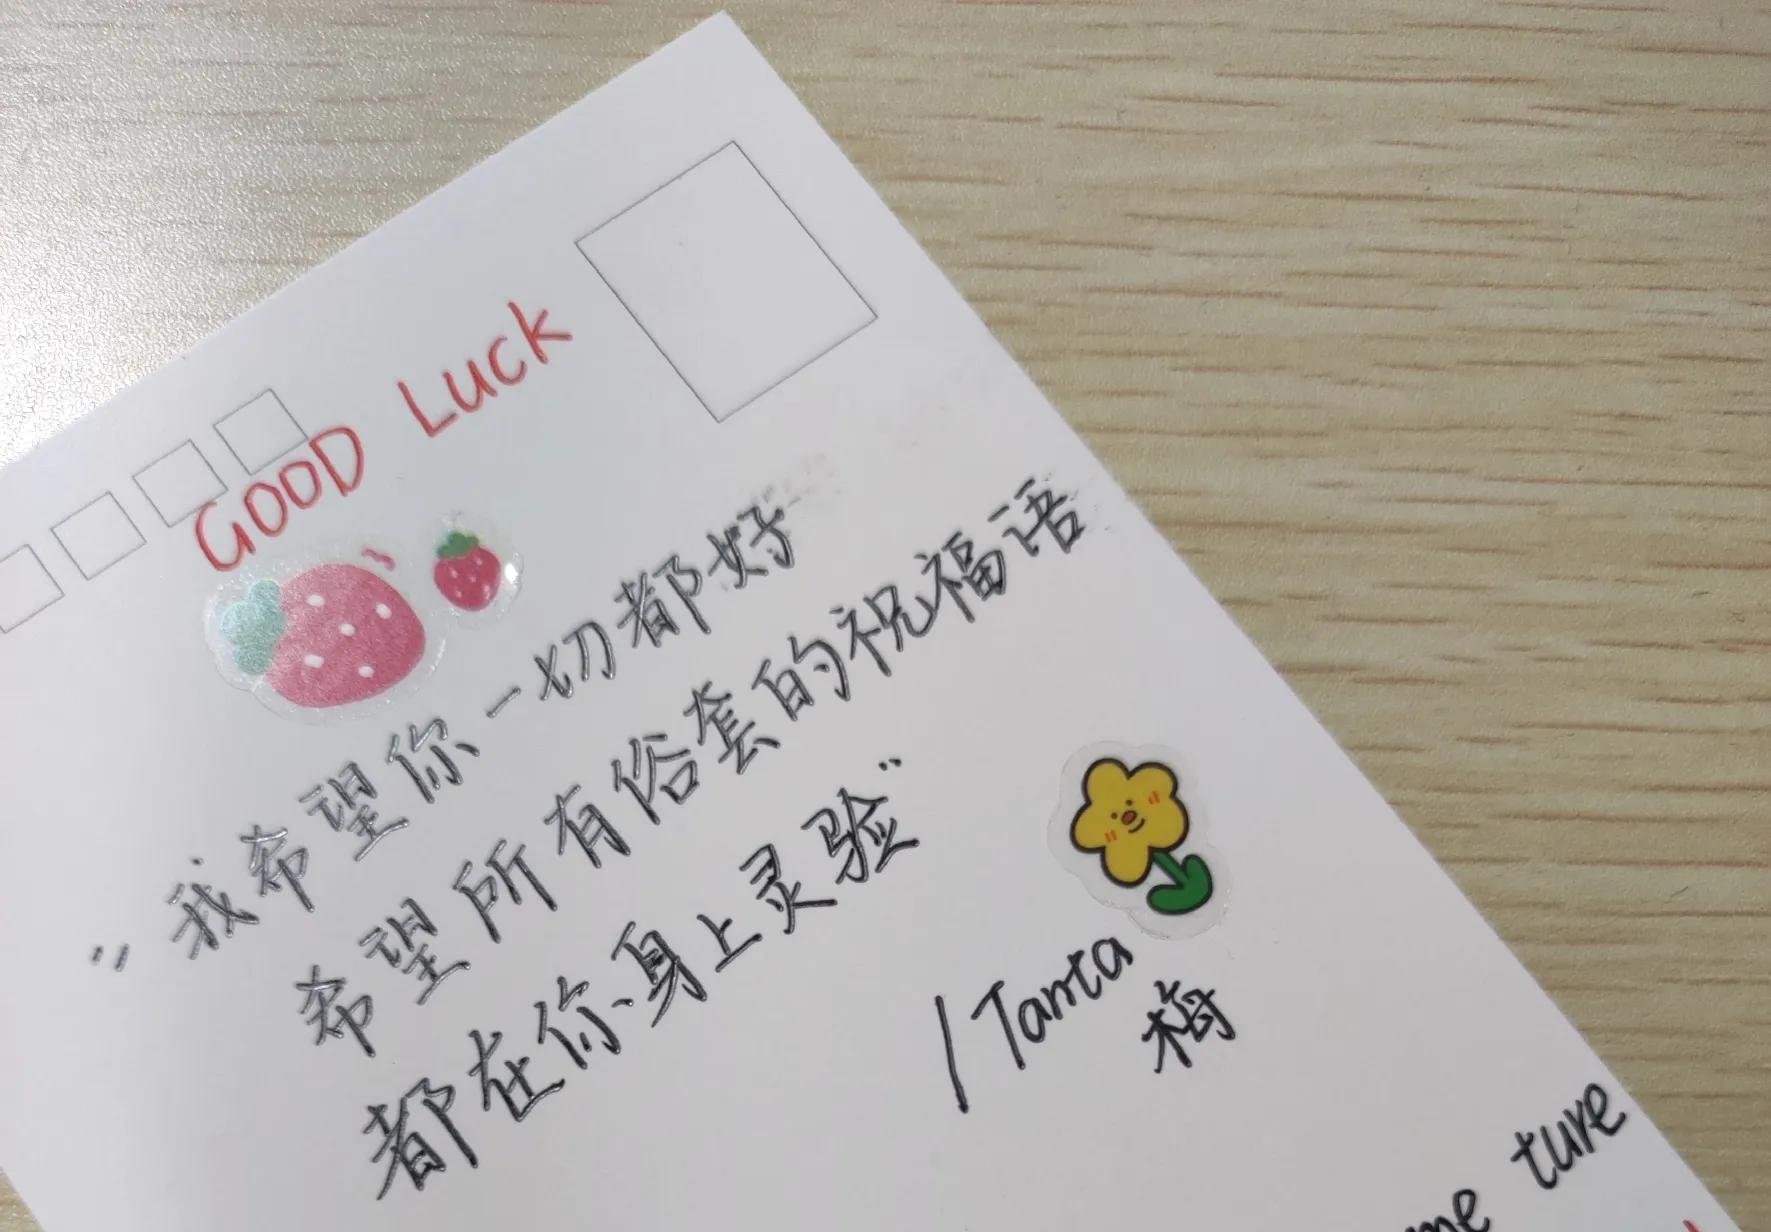 GOOD Luck
"我希望你一切都好
希望所有俗套的祝福语
都在你身上灵验"
/Tanta
梅
me ture